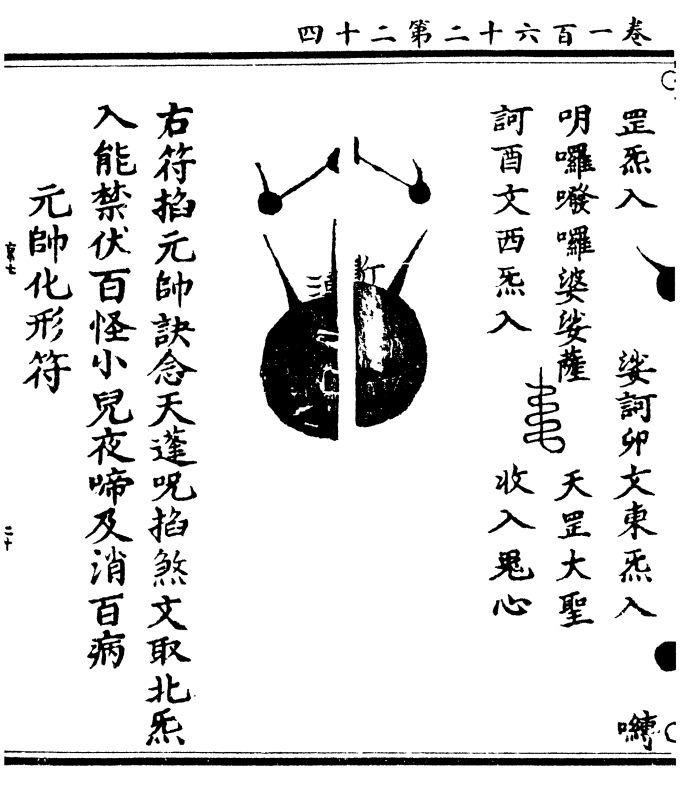 卷一百六十二第二十四
罡炁入
娑訶卯文東炁入
明囉㘔囉婆娑薩
天罡大聖
訶酉文西炁入
收入鬼心
右符掐元帥訣念天蓬呪掐煞文取北炁
入能禁伏百怪小兒夜啼及消百病
元帥化形符
二十